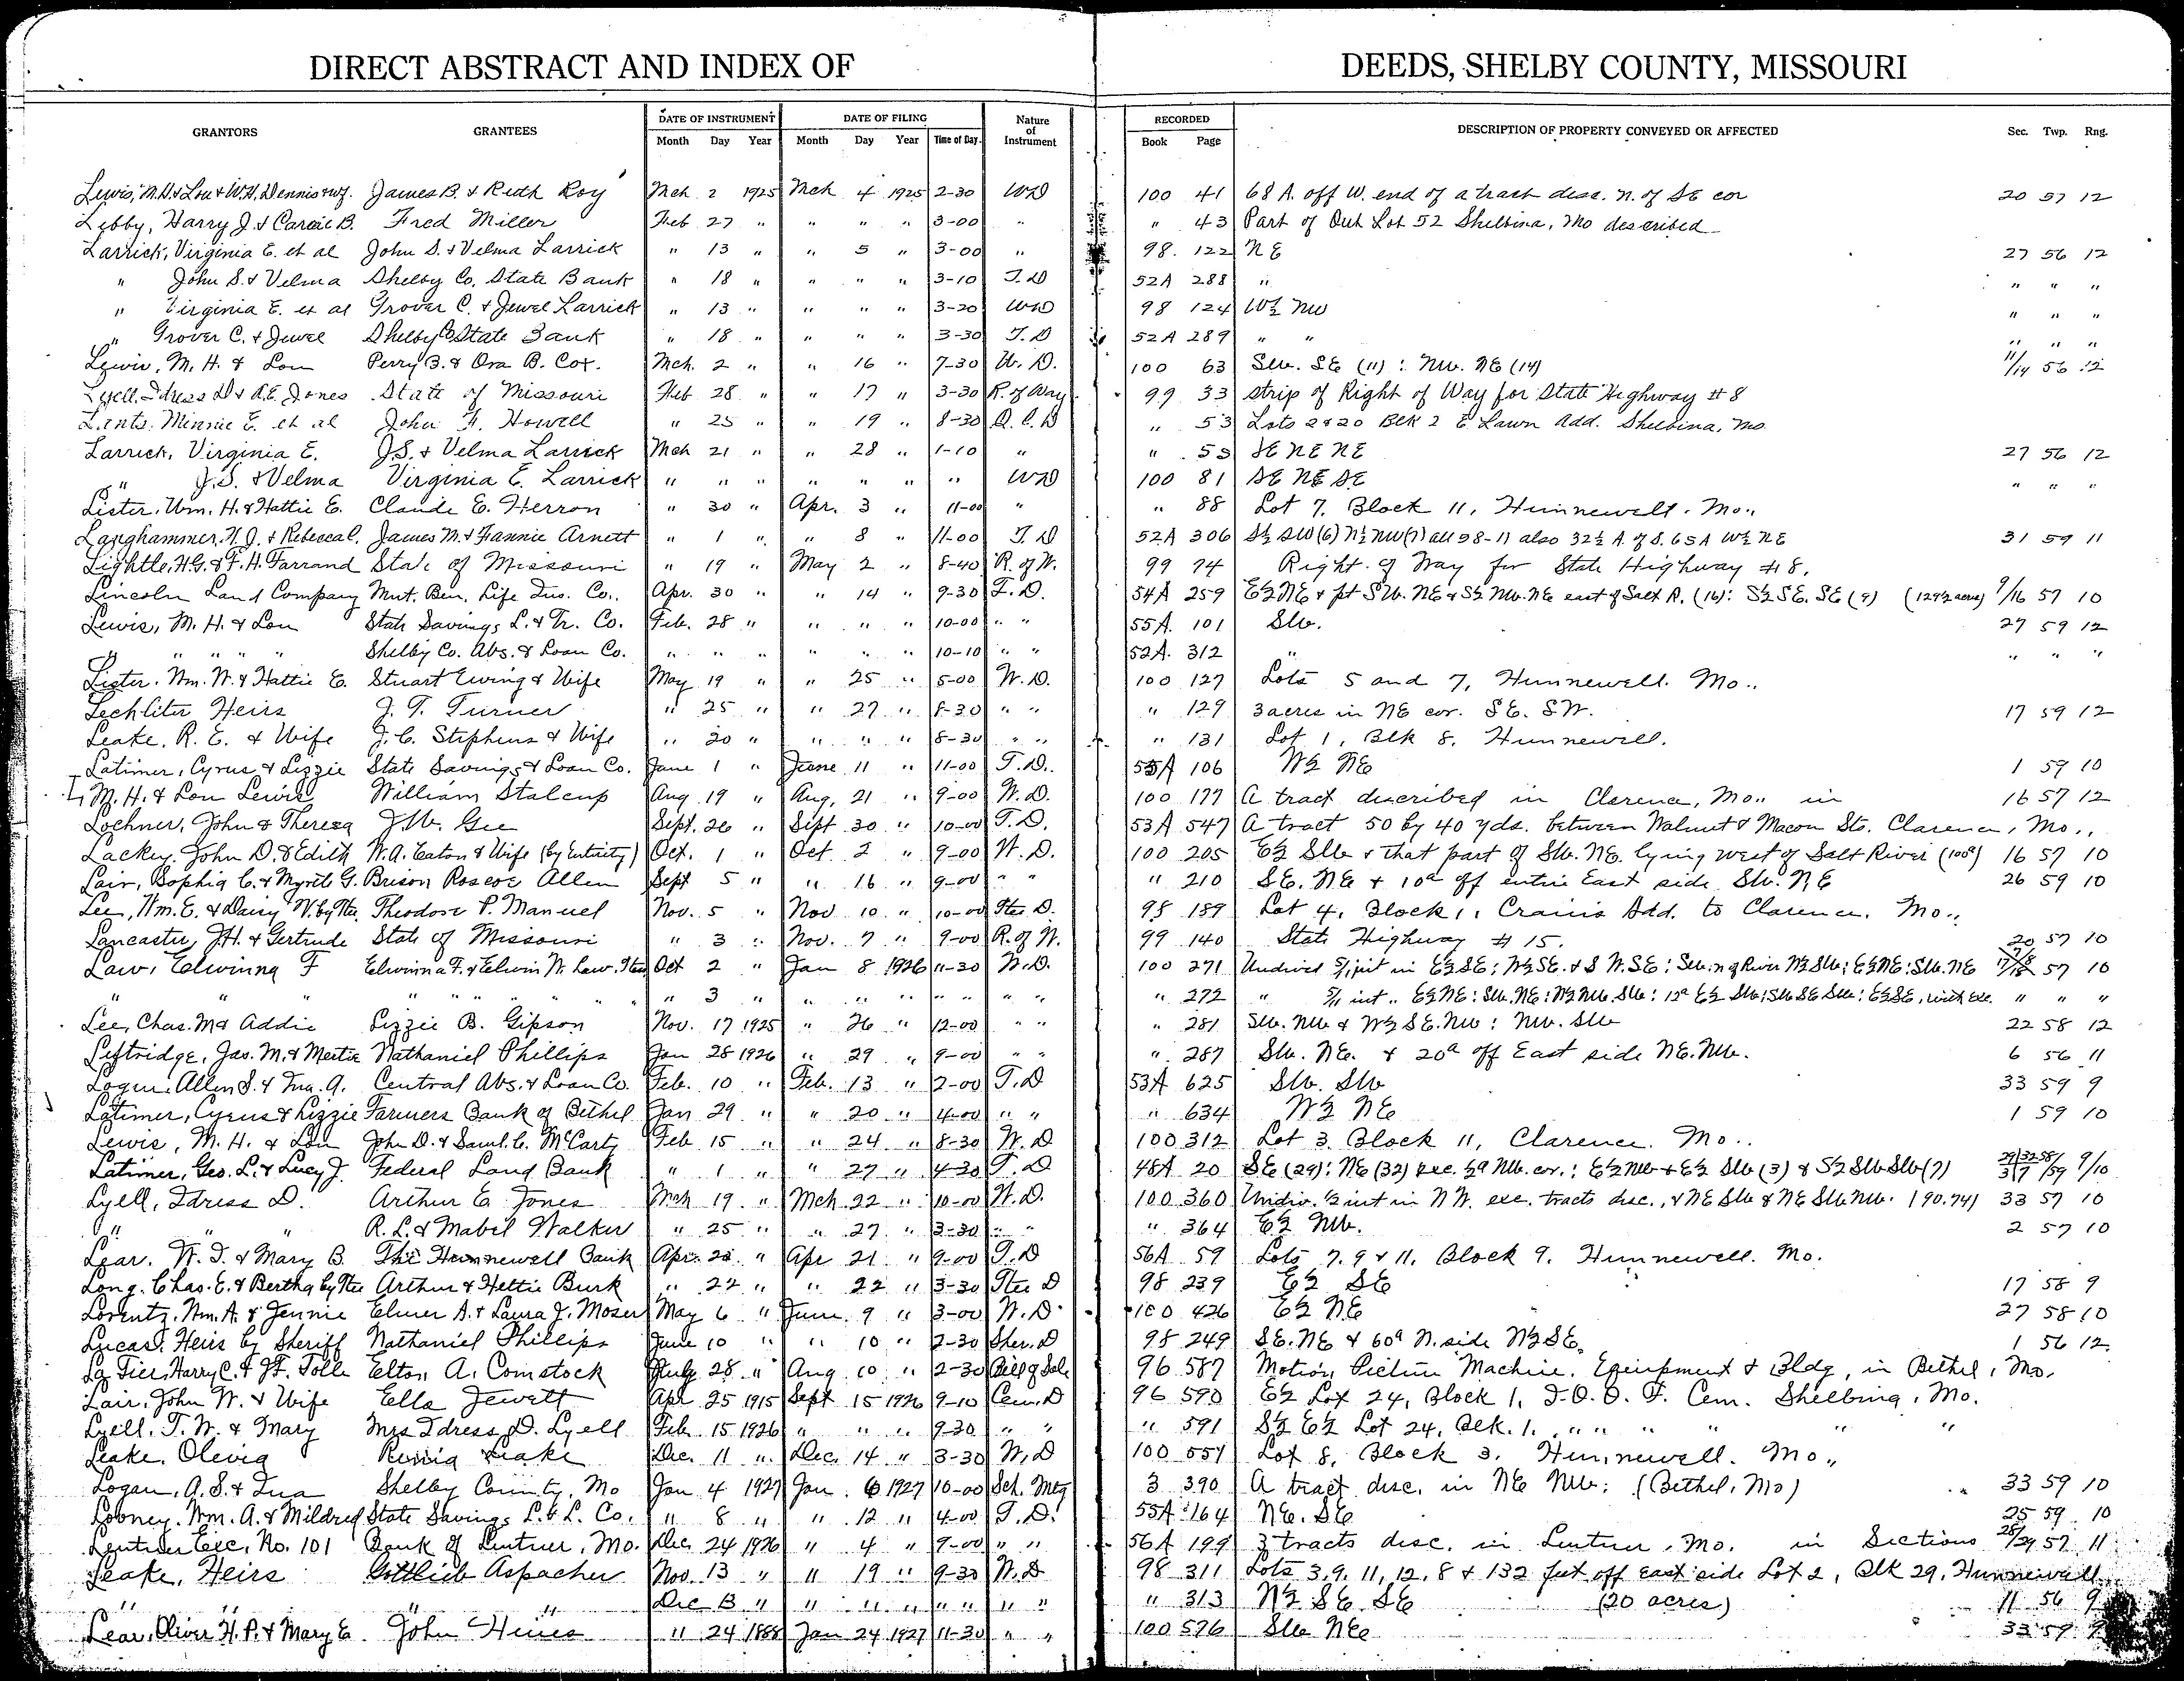 DIRECT ABSTRACT AND INDEX OF DEEDS, SHELBY COUNTY, MISSOURI
GRANTORS GRANTEES DATE OF INSTRUMENT DATE OF FILING Nature of Instrument RECORDED DESCRIPTION OF PROPERTY CONVEYED OR AFFECTED Sec. Twp. Rng.
Month Day Year Month Day Year Time of Day Book Page
Lewis, M.H. & Lou & W.H. Dennis & wf. James B. & Ruth Roy Mch 2 1925 Mch 4 1925 2-30 WD 100 41 68 A. off W. end of a tract desc. N. of SE cor 20 57 12
Libby, Harry J. & Carrie B. Fred Miller Feb 27 " " " " 3-00 " " 43 Part of Out Lot 52 Shelbina, Mo described
Larrick, Virginia E. et al John S. & Velma Larrick " 13 " " 5 " 3-00 " 98 122 NE 27 56 12
" John S. & Velma Shelby Co. State Bank " 18 " " " " 3-10 T.D 52A 288 " " " "
" Virginia E. et al Grover C. & Jewel Larrick " 13 " " " " 3-20 WD 98 124 W½ NW " " "
" Grover C. & Jewel Shelby Co State Bank " 18 " " " " 3-30 T.D 52A 289 " " " " "
Lewis, M. H. & Lou Perry B. & Ora B. Cox. Mch. 2 " " 16 " 7-30 W. D. 100 63 SW. SE (11) : NW. NE (14) 11/14 56 12
Lyell, Idress D & A.E. Jones State of Missouri Feb 28 " " 17 " 3-30 R. of Way 99 33 strip of Right of Way for State Highway #8
Lantz, Minnie E. et al John F. Howell " 25 " " 19 " 8-30 Q. C. D " 53 Lots 2 & 20 Blk 2 E Lawn Add. Shelbina, Mo.
Larrick, Virginia E. J.S. & Velma Larrick Mch 21 " " 28 " 1-10 " " 55 SE NE NE 27 56 12
" J.S. & Velma Virginia E. Larrick " " " " " " " WD 100 81 SE NE SE " " "
Lister, Wm. H. & Hattie E. Claude E. Herron " 30 " Apr. 3 " 11-00 " " 88 Lot 7, Block 11, Hunnewell, Mo..
Langhammer, F. J. & Rebecca C. James M. & Fannie Arnett " 1 " " 8 " 11-00 T.D 52A 306 S½ SW (6) N½ NW (7) all 58-11 also 32½ A. of S. 65 A W½ NE 31 59 11
Lightle, H.G. & F.H. Farrand State of Missouri " 19 " May 2 " 8-40 R. of W. 99 74 Right of Way for State Highway #8.
Lincoln Land Company Mut. Ben. Life Ins. Co.. Apr. 30 " " 14 " 9-30 T. D. 54A 259 E½ NE & pt SW. NE & S½ NW. NE east of Salt R. (16): S½ SE. SE (9) (129½ acres) 9/16 57 10
Lewis, M. H. & Lou State Savings L. & Tr. Co. Feb. 28 " " " " 10-00 " " 55A. 101 SW. 27 59 12
" " " " Shelby Co. Abs. & Loan Co. " " " " " " 10-10 " " 52A. 312 " " " "
Lister, Wm. W. & Hattie E. Stuart Ewing & Wife May 19 " " 25 " 5-00 W. D. 100 127 Lots 5 and 7, Hunnewell. Mo..
Lechliter Heirs J. T. Turner " 25 " " 27 " 8-30 " " " 129 3 acres in NE cor. SE. SW. 17 59 12
Leake, R. E. & Wife J. C. Stephens & Wife " 20 " " " " 8-30 " " " 131 Lot 1, Blk 8. Hunnewell.
Latimer, Cyrus & Lizzie State Savings & Loan Co. June 1 " June 11 " 11-00 T.D.. 55A 106 W½ NE 1 59 10
M. H. & Lou Lewis William Stalcup Aug 19 " Aug. 21 " 9-00 W. D. 100 177 A tract described in Clarence, Mo.. in 16 57 12
Lochner, John & Theresa J.W. Gee Sept. 26 " Sept 30 " 10-00 T.D. 53A 547 A tract 50 by 40 yds. between Walnut & Macon Sts. Clarence, Mo..
Lackey. John D. & Edith W. A. Eaton & Wife (by Entirity) Oct. 1 " Oct. 2 " 9-00 W. D. 100 205 E½ SW & that part of SW. NE. lying west of Salt River (100a) 16 57 10
Lair, Sophia C. & Myrtle G. Brison Roscoe Allen Sept 5 " " 16 " 9-00 " " " 210 SE. NE & 10a off entire East side SW. NE 26 59 10
Lee, Wm. E. & Daisy W. by Tte. Theodore P. Manuel Nov. 5 " Nov 10 " 10-00 Ttee D. 98 189 Lot 4, Block 1, Crain's Add. to Clarence. Mo..
Lancaster, J.H. & Gertrude State of Missouri " 3 " Nov. 7 " 9-00 R. of W. 99 140 State Highway #15. 20 57 10
Law, Elwinna F Elwinna F. & Elwin W. Law. Ttes Oct 2 " Jan 8 1926 11-30 W.D. 100 271 Undived 5/11 int in E½ SE; W½ SE. & S W. SE; SW. n of River W½ SW; E½ NE; SW. NE 57 10
" " " " " " " " " 3 " " " " " " " " " 272 " 5/11 int.. E½ NE; SW. NE; W½ NW. SW; 12a E½ SW; SW SE SW; E½ SE, with exc. " " "
Lee, Chas. M & Addie Lizzie B. Gipson Nov. 17 1925 " 26 " 12-00 " " " 281 SW. NW & W½ SE. NW; NW. SW 22 58 12
Leftridge, Jas. M. & Mertie Nathaniel Phillips Jan 28 1926 " 29 " 9-00 " " " 287 SW. NE. & 20a off East side NE. NW. 6 56 11
Logan, Allen S. & Ina. A. Central Abs. & Loan Co. Feb. 10 " Feb. 13 " 2-00 T.D 53A 625 SW. SW 33 59 9
Latimer, Cyrus & Lizzie Farmers Bank of Bethel Jan 29 " " 20 " 4-00 " " " 634 W½ NE 1 59 10
Lewis, M. H. & Lou John D. & Saml. C. McCarty Feb 15 " " 24 " 8-30 W. D 100 312 Lot 3 Block 11, Clarence. Mo..
Latimer, Geo. L. & Lucy J. Federal Land Bank " 1 " " 27 " 4-30 T. D 48A 20 SE (29): NE (32) exc. NW. cor.: E½ NW & E½ SW (3) & S½ SW SW (7) 9/10
Lyell, Idress D. Arthur E Jones Mch 19 " Mch 22 " 10-00 W. D. 100 360 Undiv. ½ int in N W. exc. tracts desc., & NE SW & NE SW NW. (90.74) 33 57 10
" " " R. L. & Mabel Walker " 25 " " 27 " 3-30 " " " 364 E½ NW. 2 57 10
Lear, W. T. & Mary B. The Hunnewell Bank Apr. 20 " Apr 21 " 9-00 T.D 56A 59 Lots 7. 9 & 11, Block 9. Hunnewell. Mo.
Long, Chas. E. & Bertha by Ttee Arthur & Hettie Burk " 22 " " 22 " 3-30 Ttee D 98 239 E½ SE 17 58 9
Lorentz, Wm. A. & Jennie Elmer A. & Laura J. Moser May 6 " June 9 " 3-00 W. D 100 426 E½ NE 27 58 10
Lucas, Heirs by Sheriff Nathaniel Phillips June 10 " " 10 " 2-30 Sher. D 98 249 SE. NE & 60a N. side W½ SE. 1 56 12
La Tier, Harry C. & J.F. Tolle Elton A. Comstock July 28 " Aug 10 " 2-30 Bill of Sale 96 587 Motion Picture Machine. Equipment & Bldg, in Bethel, Mo.
Lair, John W. & Wife Ella Jewett Apr 25 1915 Sept 15 1926 9-10 Cem. D 96 590 E½ Lot 24, Block 1, I.O.O.F. Cem. Shelbina, Mo.
Lyell. T. W. & Mary Mrs Idress D. Lyell Feb 15 1926 " " " 9-30 " " " 591 S½ E½ Lot 24, Blk. 1. " " " " " "
Leake, Olevia Leake Dec. 11 " Dec. 14 " 3-30 W. D 100 557 Lot 8, Block 3, Hunnewell. Mo..
Logan, A. S. & Ina Shelby County, Mo Jan 4 1927 Jan. 6 1927 10-00 Sch. Mtg 3 390 A tract desc. in NE NW; (Bethel, Mo) 33 59 10
Looney. Wm. A. & Mildred State Savings L. & L. Co. " 8 " " 12 " 4-00 T.D. 55A 164 NE. SE 25 59 10
Lentner Exc. No. 101 Bank of Lentner, Mo. Dec. 24 1926 " 4 " 9-00 " " 56A 199 3 tracts desc. in Lentner, Mo. in Sections 28/29 57 11
Leake, Heirs Gottlieb Aspacher Nov. 13 " " 19 " 9-30 W.D 98 311 Lots 3, 9, 11, 12, 8 & 132 feet off east side Lot 2, Blk 29, Hunnewell
" " " " Dec 13 " " " " " " " " " 313 N½ SE SE (20 acres) 11 56 9
Lear, Oliver H. P. & Mary E. John Hines " 24 1888 Jan 24 1927 11-30 " " 100 596 SW NE 33 59 9